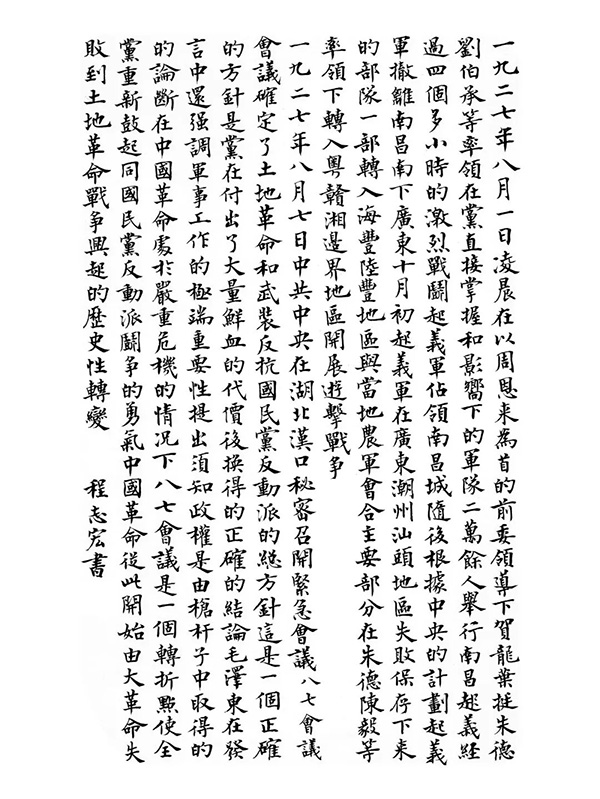 一九二七年八月一日凌晨在以周恩来為首的前委領導下賀龍葉挺朱德
劉伯承等率領在黨直接掌握和影響下的軍隊二萬餘人舉行南昌起義経
過四個多小時的激烈戰鬭起義軍佔領南昌城隨後根據中央的計劃起義
軍撤離南昌南下廣東十月初起義軍在廣東潮州汕頭地區失敗保存下来
的部隊一部轉入海豐陸豐地區與當地農軍會合主要部分在朱德陳毅等
率領下轉入粤贛湘邊界地區開展遊擊戰争
一九二七年八月七日中共中央在湖北漢口秘密召開緊急會議八七會議
會議確定了土地革命和武裝反抗國民黨反動派的總方針這是一個正確
的方針是黨在付出了大量鮮血的代價後換得的正確的結論毛澤東在發
言中還强調軍事工作的極端重要性提出須知政權是由槍杆子中取得的
的論斷在中國革命處於嚴重危機的情况下八七會議是一個轉折點使全
黨重新鼓起同國民黨反動派鬭争的勇氣中國革命從此開始由大革命失
敗到土地革命戰争興起的歷史性轉變　程志宏書